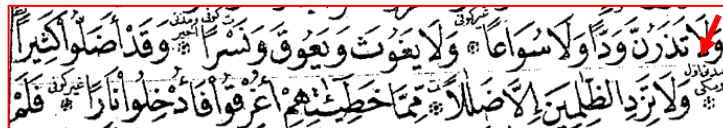 وَلَا تَذَرُنَّ وَدًّا وَلَا سُوَاعًا وَلَا يَغُوثَ وَيَعُوقَ وَنَسْرًا وَقَدْ أَضَلُّوا كَثِيرًا
وَلَا تَزِدِ الظَّٰلِمِينَ إِلَّا ضَلَٰلًا مِّمَّا خَطِيٓـَٰٔتِهِمْ أُغْرِقُوا فَأُدْخِلُوا نَارًا فَلَمْ